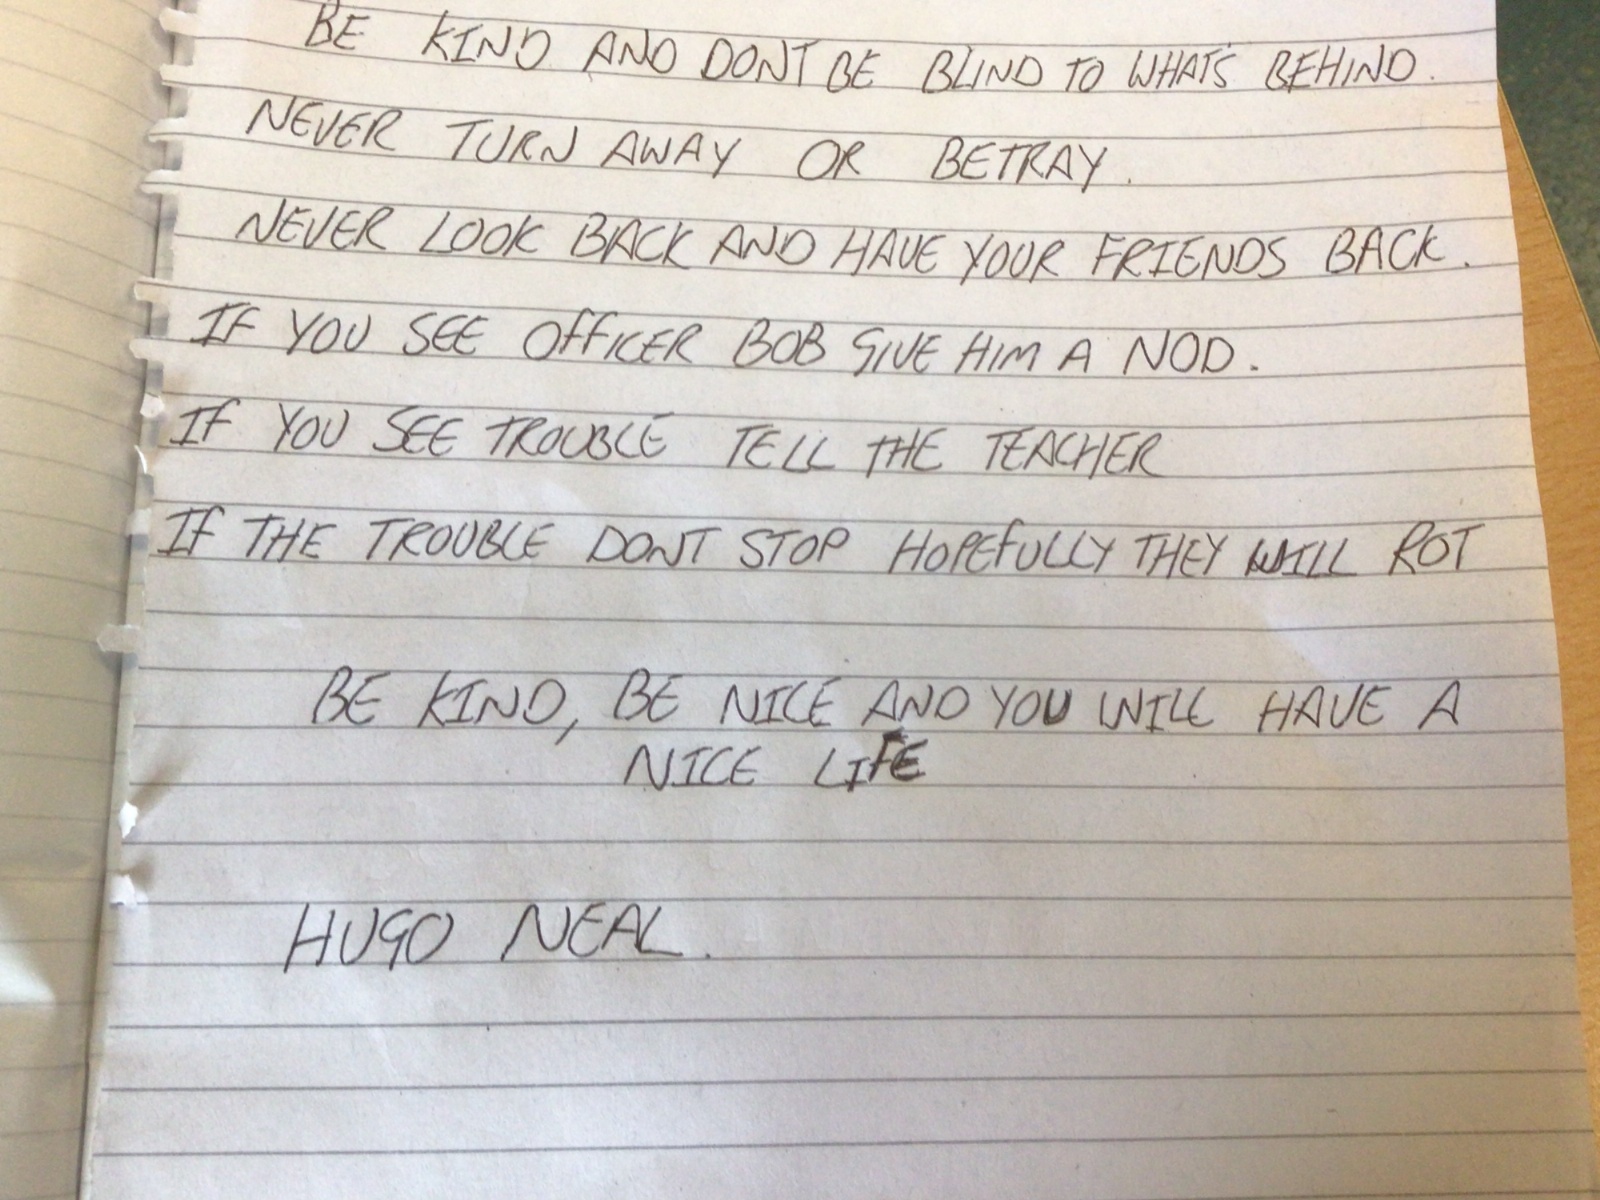 BE KIND AND DONT BE BLIND TO WHATS BEHIND.
NEVER TURN AWAY OR BETRAY.
NEVER LOOK BACK AND HAVE YOUR FRIENDS BACK.
IF YOU SEE OFFICER BOB GIVE HIM A NOD.
IF YOU SEE TROUBLE TELL THE TEACHER
IF THE TROUBLE DONT STOP HOPEFULLY THEY WILL ROT
BE KIND, BE NICE AND YOU WILL HAVE A
NICE LIFE
HUGO NEAL.